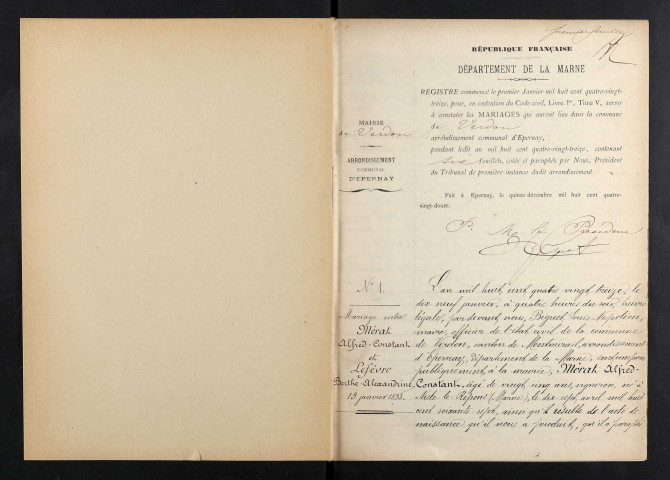 premier feuillet
RÉPUBLIQUE FRANÇAISE
DÉPARTEMENT DE LA MARNE
REGISTRE commencé le premier Janvier mil huit cent quatre-vingt-
treize, pour, en exécution du Code civil, Livre Ier, Titre V, servir
à constater les MARIAGES qui auront lieu dans la commune
de Verdon
arrondissement communal d'Epernay,
pendant ledit an mil huit cent quatre-vingt-treize, contenant
six feuillets, cotés et paraphés par Nous, Président
du Tribunal de première instance dudit arrondissement.
Fait à Epernay, le quinze décembre mil huit cent quatre-
vingt-douze.
P. Mr le Président
MAIRIE
de Verdon
ARRONDISSEMENT
COMMUNAL
D'ÉPERNAY
N° 1.
Mariage entre
Mérat
Alfred-Constant
et
Lefèvre
Berthe-Alexandrine
19 janvier 1893.
L'an mil huit cent quatre vingt treize, le
dix neuf janvier, à quatre heures du soir, heure
légale, par devant nous, Biguet Louis-Napoléon,
maire, officier de l'état civil de la commune
de Verdon, canton de Montmirail, arrondissement
d'Epernay, département de la Marne,
publiquement, à la mairie, Mérat Alfred-
Constant, âgé de vingt cinq ans, vigneron, né à
Nesle le Repons (Marne), le dix sept avril mil huit
cent soixante-sept, ainsi qu'il résulte de l'acte de
naissance qu'il nous a produit,